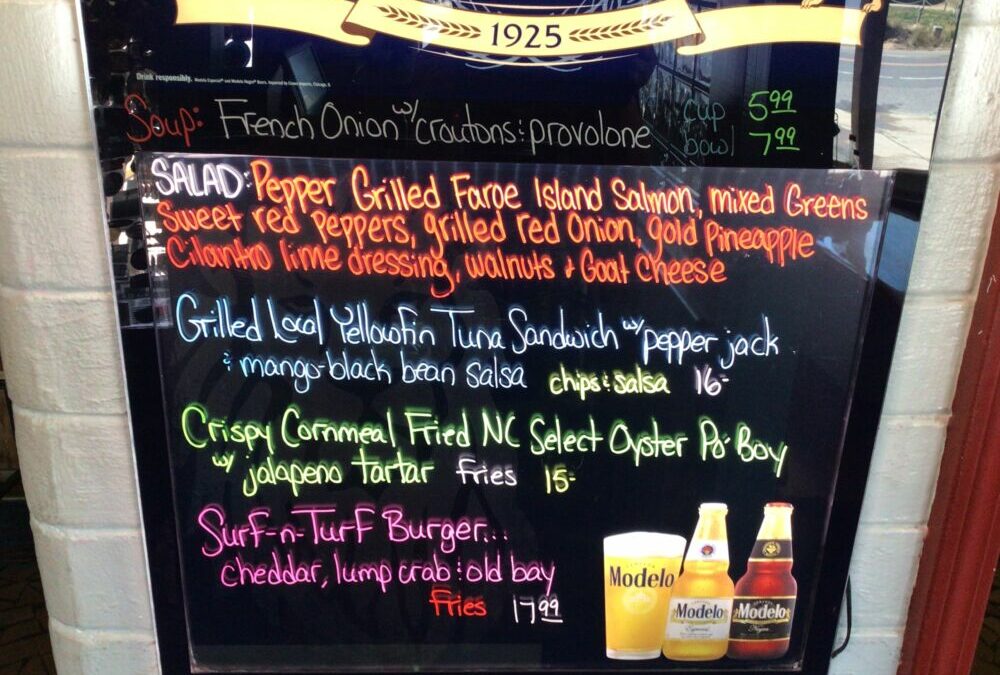 1925
Drink responsibly.
Soup: French Onion w/ croutons & provolone cup 5.99
bowl 7.99
SALAD: Pepper Grilled Faroe Island Salmon, mixed Greens
Sweet red Peppers, grilled red Onion, gold Pineapple
Cilantro lime dressing, walnuts & Goat Cheese
Grilled Local Yellowfin Tuna Sandwich w/ pepper jack
& mango-black bean salsa chips & salsa 16-
Crispy Cornmeal Fried NC Select Oyster Po-Boy
w/ jalapeno tartar fries 15-
Surf-n-Turf Burger...
cheddar, lump crab & old bay
Fries 17.99
Modelo
Modelo
Especial
Modelo
Negra